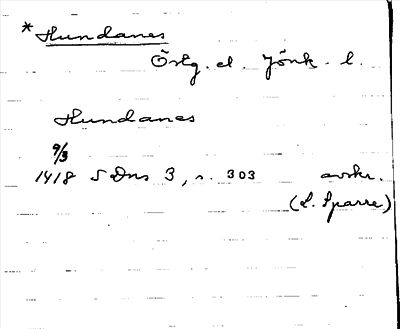 * Hundanes
Östg. el. Jönk. l.
Hundanes
9/3
1418 SDns 3, s. 303 avskr.
(L. Sparre)